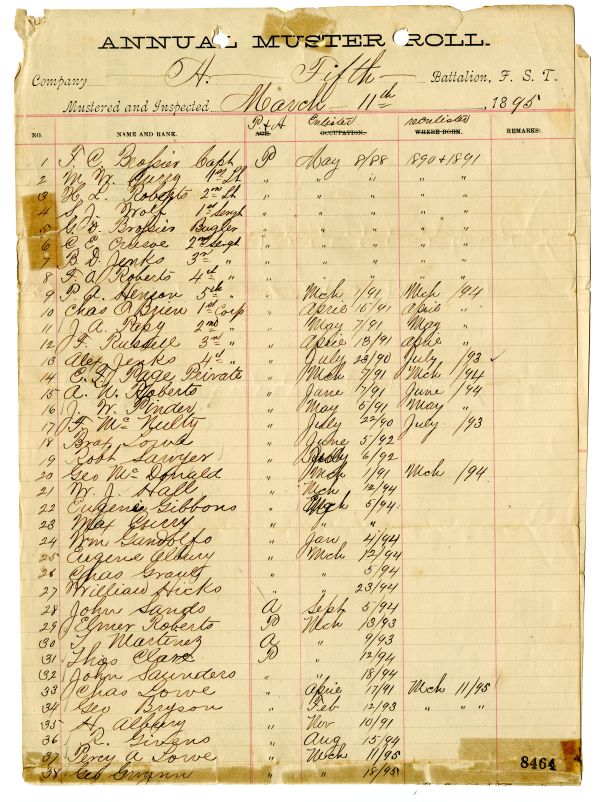 ANNUAL MUSTER ROLL.
Company H. Fifth Battalion, F. S. T.
Mustered and Inspected March 11th, 1895
P & A Enlisted reenlisted
NO. NAME AND RANK. AGE. OCCUPATION. WHERE BORN. REMARKS.
1 F. C. Brossier Capt P May 8/88 1890 & 1891
2 M. W. Curry 1st Lt " " "
3 H. L. Roberts 2nd Lt " " "
4 S. J. Wolf 1st Sergt " " "
5 C. D. Brossier Bugler " " "
6 C. E. Crusoe 2nd Sergt " " "
7 B. D. Jenks 3rd " " " "
8 F. A. Roberts 4th " " " "
9 P. A. Henson 5th " " Mch 1/91 Mch /94
10 Chas O'Brien 1st Corp " April 15/91 April "
11 J. A. Papy 2nd " " May 7/91 May "
12 F. Russell 3rd " " April 13/91 April "
13 Alex Jenks 4th " " July 23/90 July /93
14 Page Private " Mch 7/91 Mch /94
15 A. N. Roberts " June 7/91 June /94
16 J. W. Pinder " May 5/91 May "
17 F. Mc Nulty " July 22/90 July /93
18 Brax Lowe " June 5/92
19 Robt Sawyer " 6/92
20 Geo McDonald " Mch 1/91 Mch /94
21 W. J. Hall " Mch 12/94
22 Eugene Gibbons " Mch 5/94
23 Max Curry " " "
24 Wm Gandolfo " Jan 4/94
25 Eugene Albury " Mch 12/94
26 Chas " " 5/94
27 William Hicks " " 23/94
28 John Sands A Sept 5/94
29 Elmer Roberts P Mch 13/93
30 T. Martinez A " 9/93
31 Thos Clare P " 12/94
32 John Saunders " " 18/94
33 Chas Lowe " April 17/91 Mch 11/95
34 Geo Bryson " Feb 12/93 " "
35 H. Albury " Nov 10/91
36 R. Givens " Aug 15/94
37 Percy A Lowe " Mch 11/95
38 Geo Gwynn " " 18/95
8464